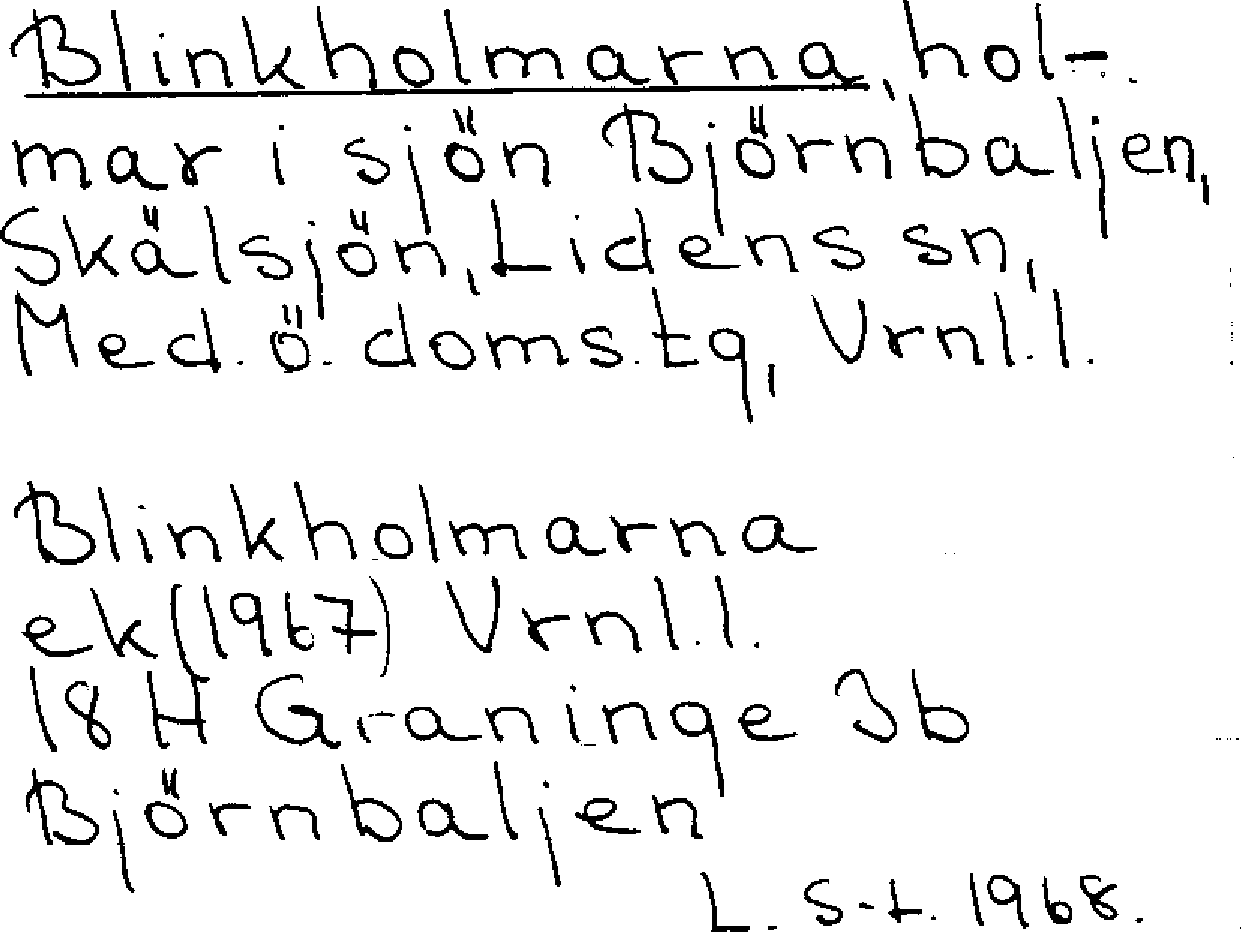 Blinkholmarna, hol-
mar i sjön Björnbaljen,
Skälsjön, Lidens sn,
Med. ö. doms. tg, Vrnl.l.
Blinkholmarna
ek (1967) Vrnl.l.
18 H Graninge 3b
Björnbaljen
L. S-t. 1968.